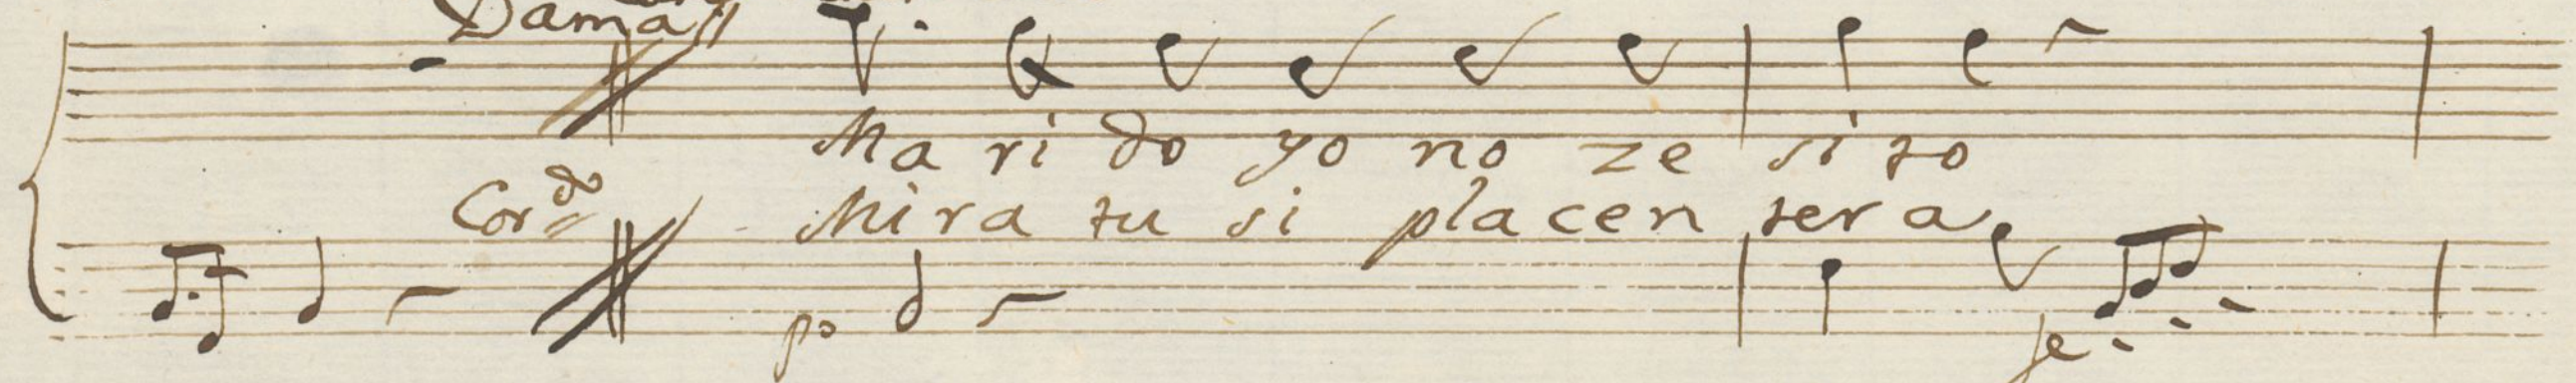 Dama
Ma ri do yo no ze si to
Cor.do Mira tu si pla cen tera
po fe